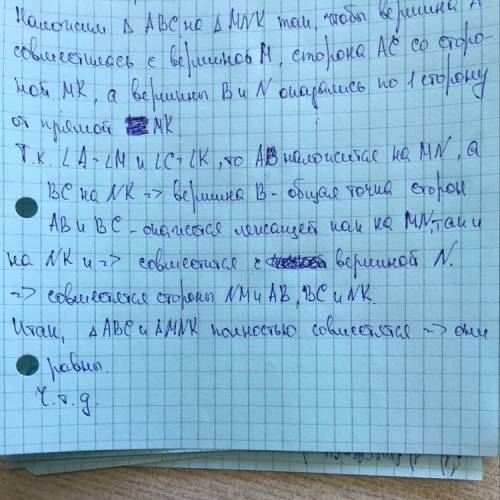 Наложим △ ABC на △ MNK так, чтобы вершина A
совместилась с вершиной M, сторона AC со сторо-
ной MK, а вершины B и N оказались по 1 сторону
от прямой MK.
Т.к. ∠A=∠M и ∠C=∠K, то AB наложится на MN, а
BC на NK => вершина B - общая точка сторон
AB и BC - окажется лежащей как на MN, так и
на NK и => совместится с вершиной N.
=> совместятся стороны NM и AB, BC и NK.
Итак, △ABC и △MNK полностью совместятся => они
равны.
Ч.т.д.